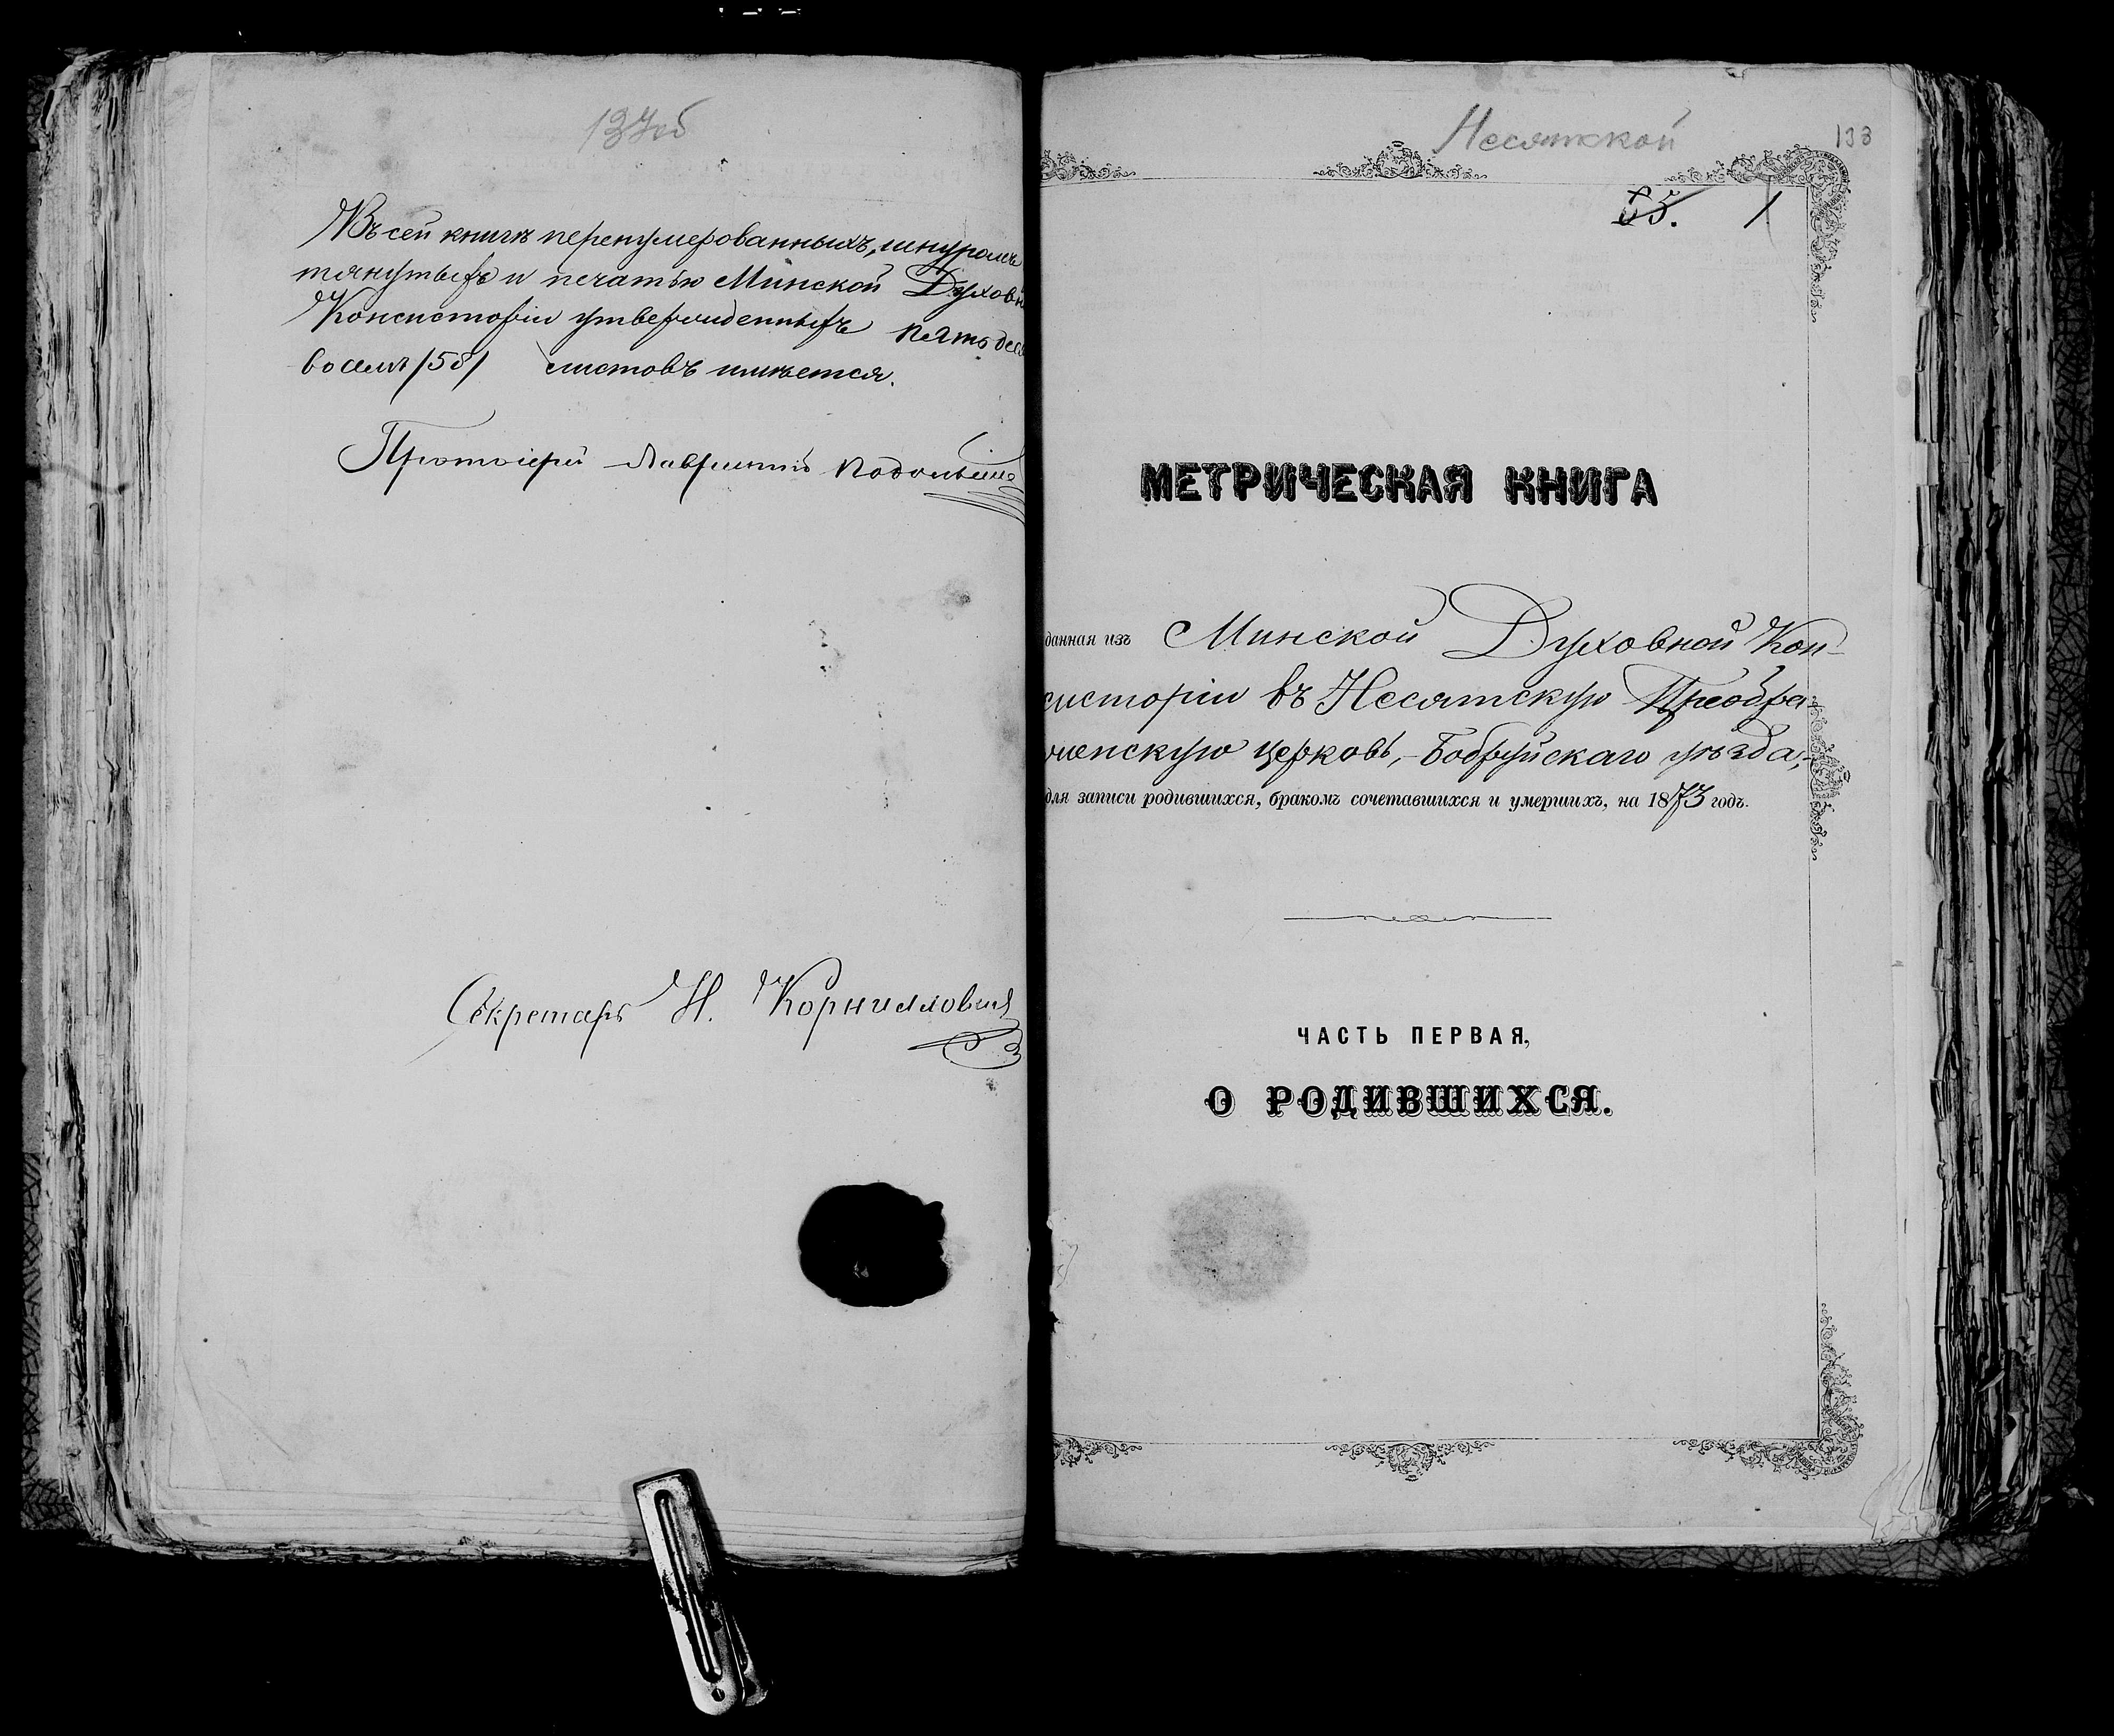 137об
Въ сей книгѣ перенумерованныхъ, шнуромъ
тянутыхъ и печатью Минской Духовн
Консисторіи утвержденныхъ пятьдеся
восемь /58/ листовъ имѣется.
Протоіерей Лаврентій
Секретарь Н. Корниллович
Несятской
133
85. 1
МЕТРИЧЕСКАЯ КНИГА
данная изъ Минской Духовной Кон-
систоріи въ Несятскую Преобра-
женскую церковь, Бобруйскаго уѣзда,
для записи родившихся, бракомъ сочетавшихся и умершихъ, на 1873 годъ.
ЧАСТЬ ПЕРВАЯ,
О РОДИВШИХСЯ.